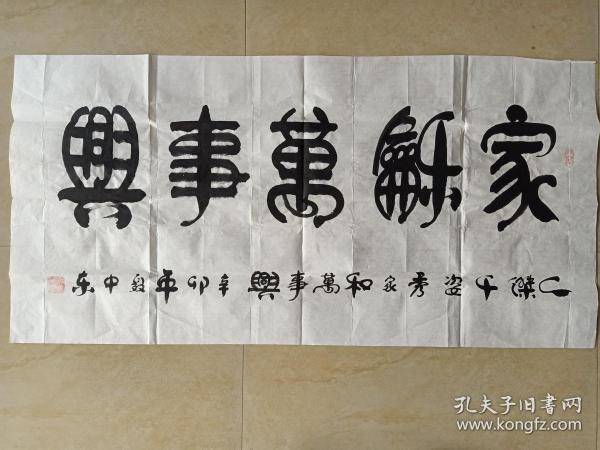 家龢萬事興
人傑千姿秀家和萬事興辛卯年
中东
孔夫子旧书网
www.kongfz.com